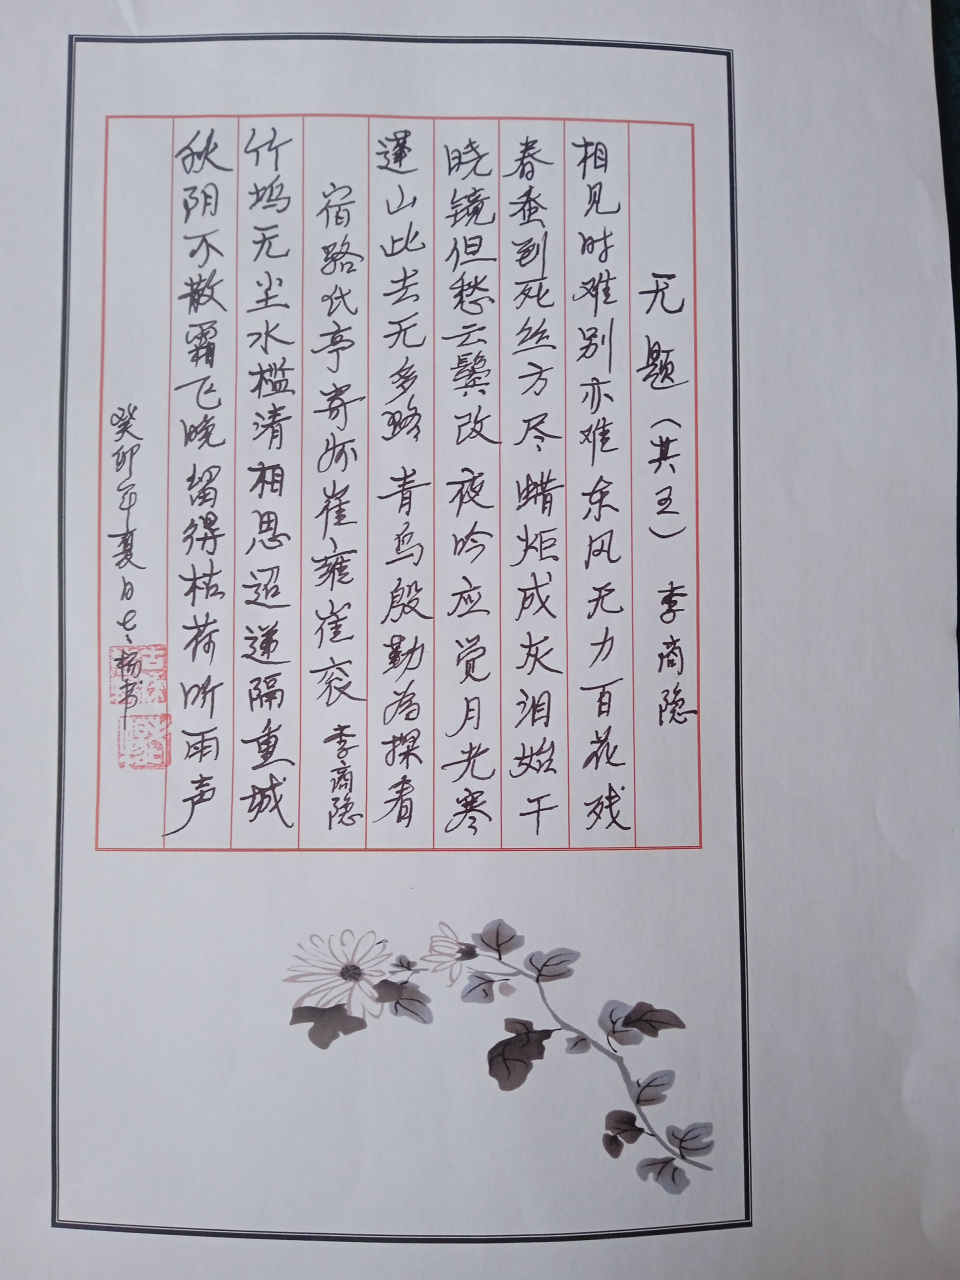 无题（其五） 李商隐
相见时难别亦难东风无力百花残
春蚕到死丝方尽蜡炬成灰泪始干
晓镜但愁云鬓改夜吟应觉月光寒
蓬山此去无多路青鸟殷勤为探看
宿骆氏亭寄怀崔雍崔衮 李商隐
竹坞无尘水槛清相思迢递隔重城
秋阴不散霜飞晚留得枯荷听雨声
癸卯年夏日七 杨书